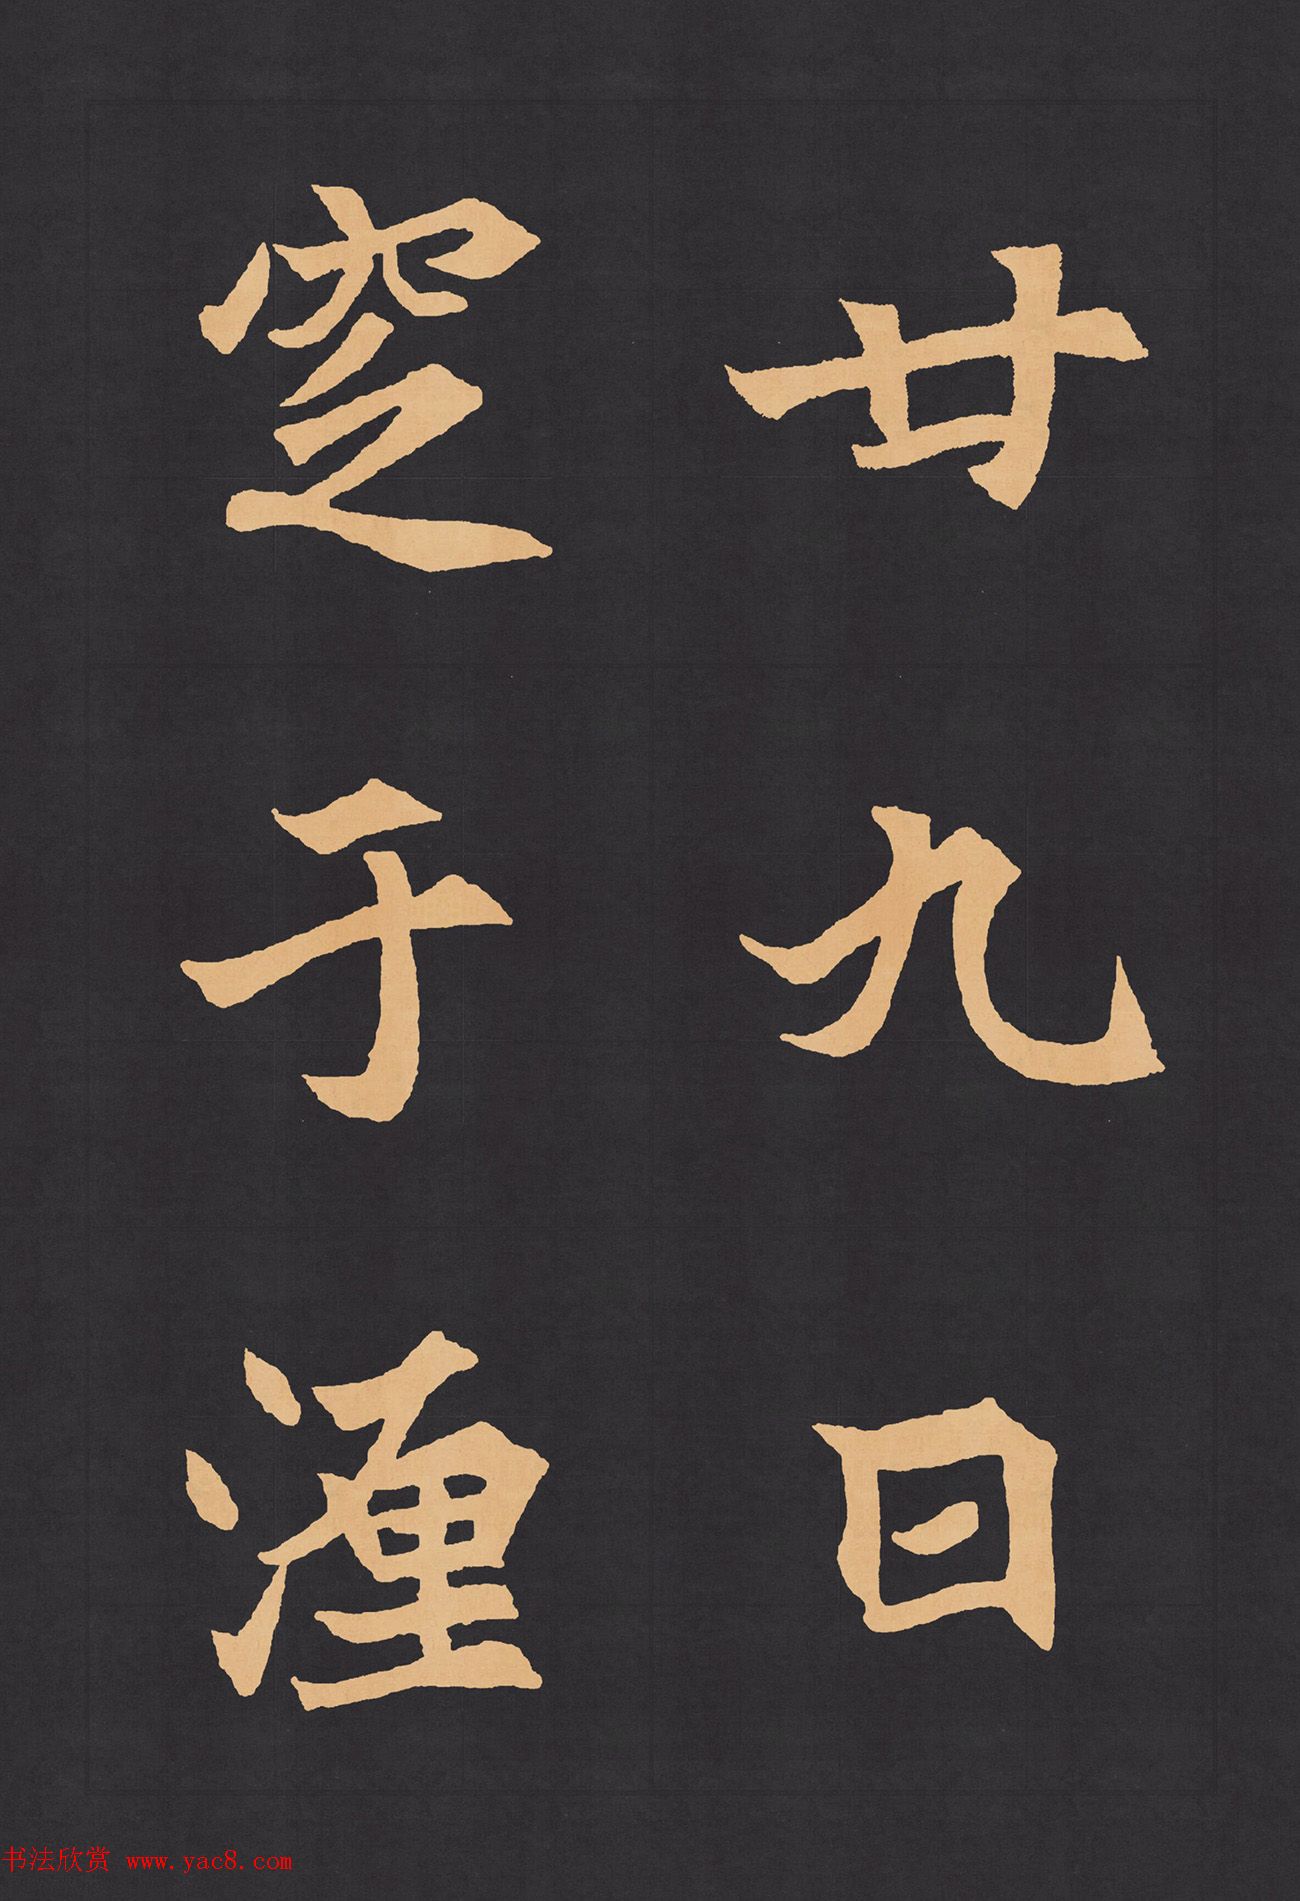 廿九日
窆于湹
书法欣赏 www.yac8.com